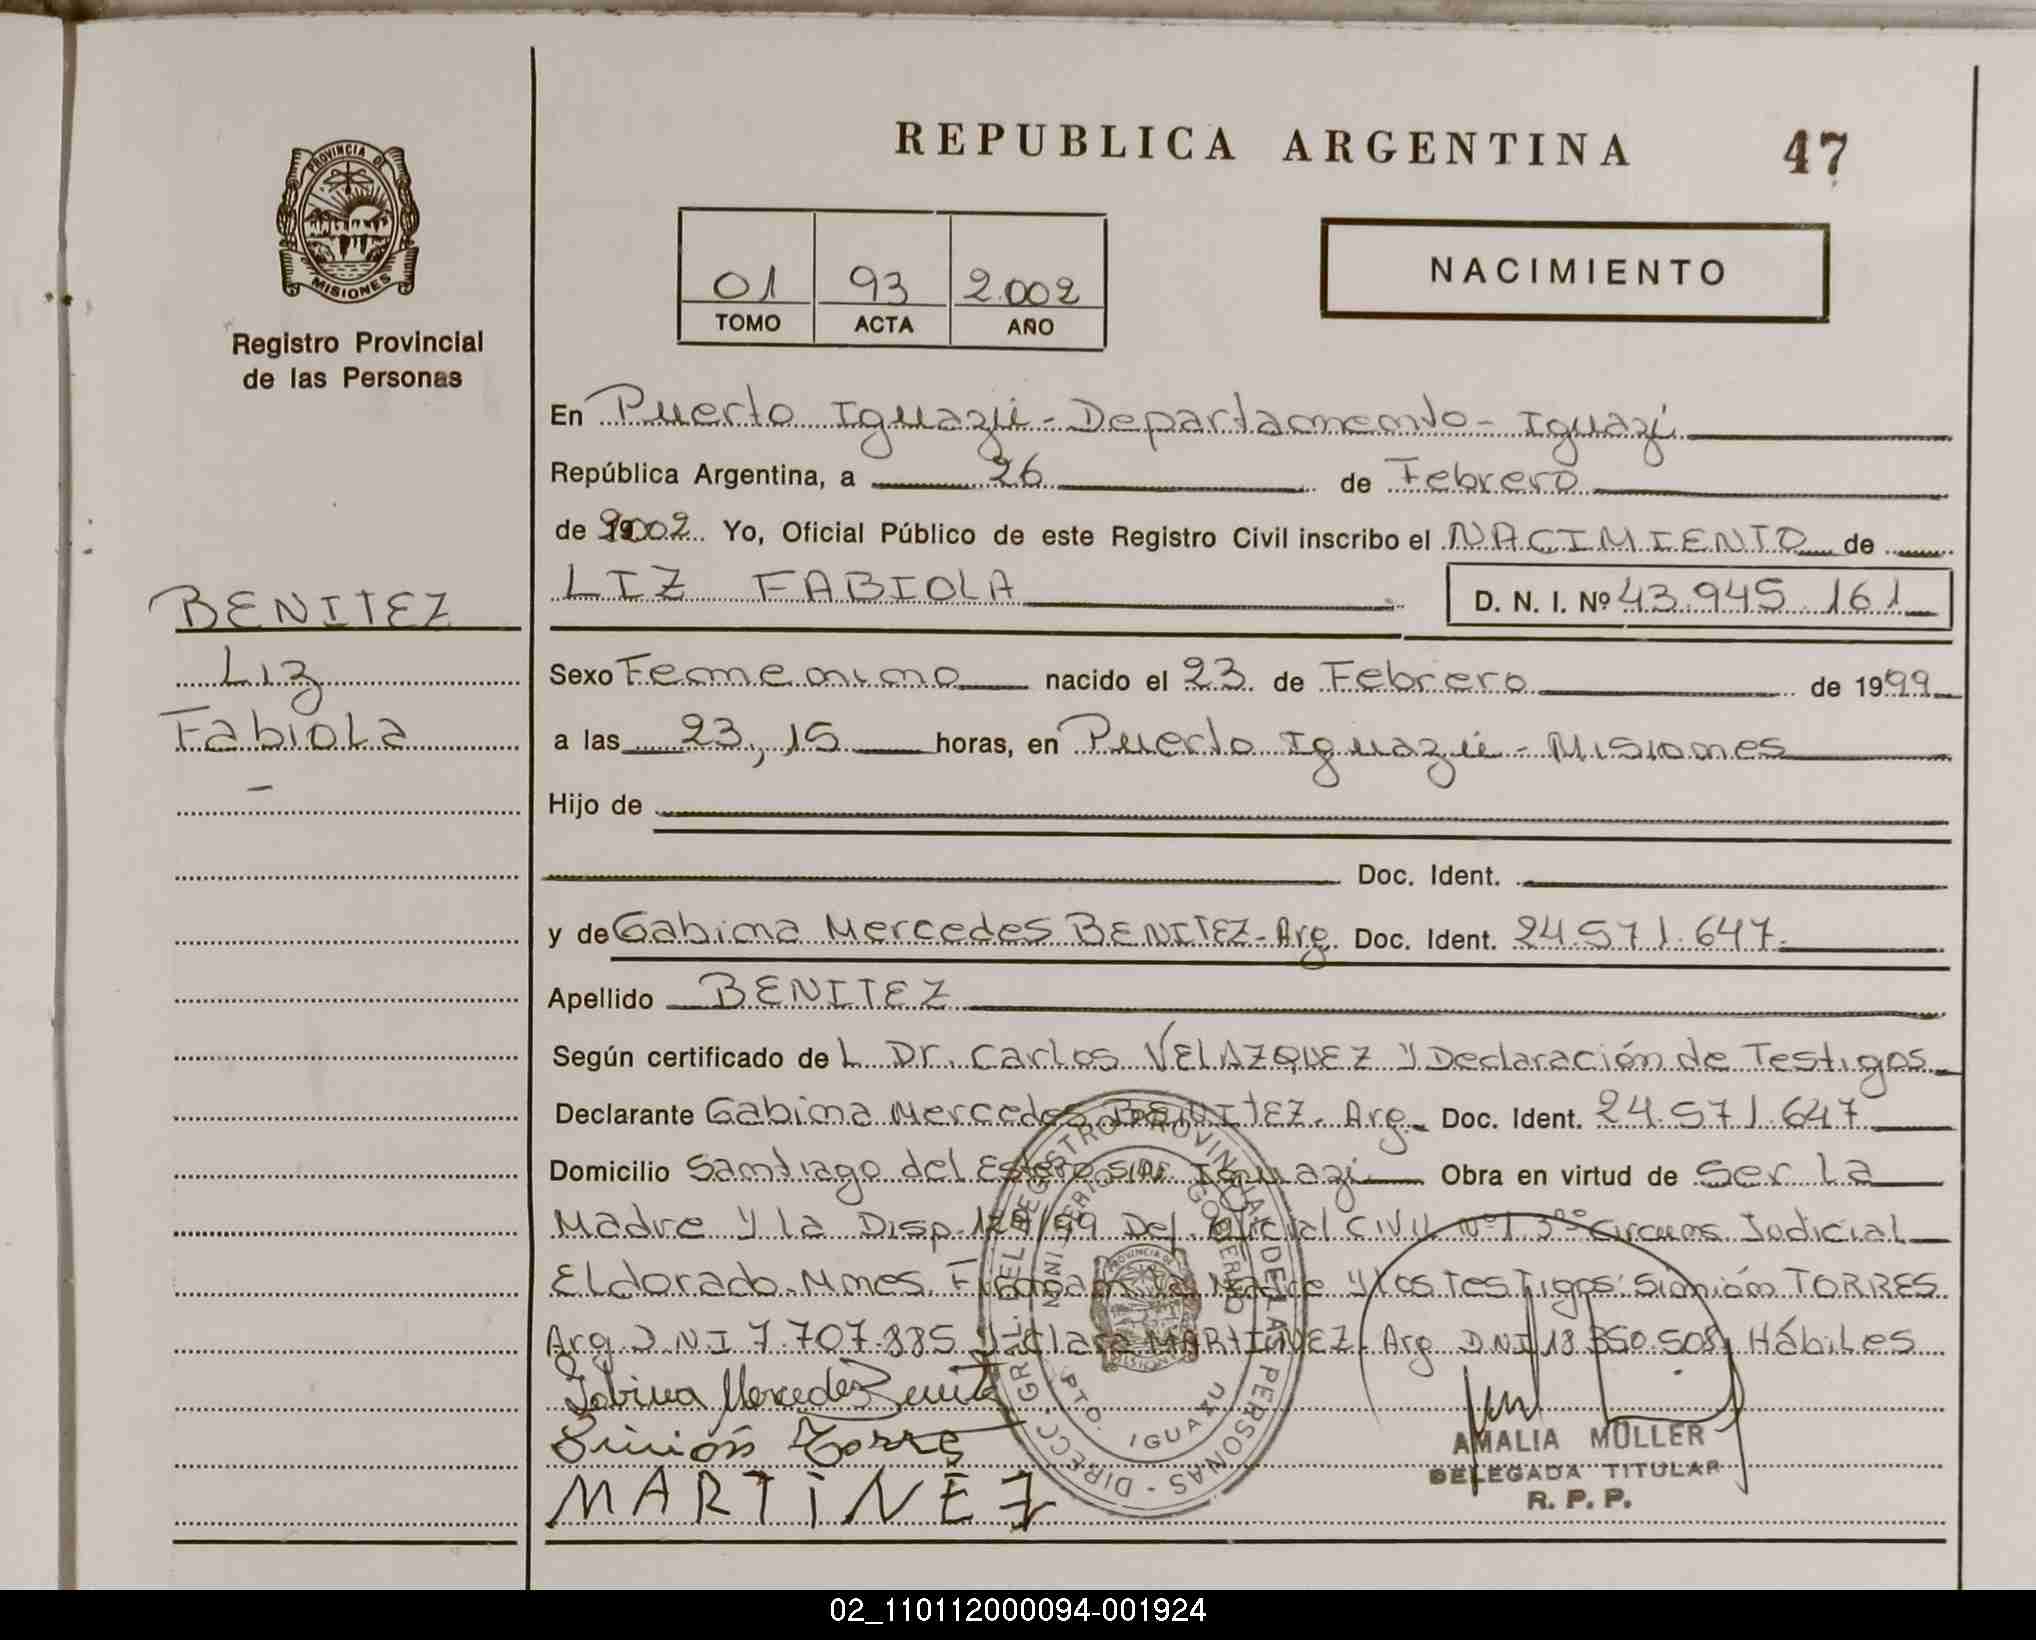 REPUBLICA ARGENTINA 47
PROVINCIA DE
MISIONES
Registro Provincial
de las Personas
01 93 2.002
TOMO ACTA AÑO
NACIMIENTO
En Puerto Iguazú - Departamento - Iguazú
República Argentina, a 26 de Febrero
de 2002. Yo, Oficial Público de este Registro Civil inscribo el NACIMIENTO de
LIZ FABIOLA D. N. I. Nº 43.945.161
BENITEZ
Liz
Fabiola
Sexo Femenino nacido el 23 de Febrero de 1999
a las 23,15 horas, en Puerto Iguazú - Misiones
Hijo de
Doc. Ident.
y de Gabina Mercedes BENITEZ - Arg. Doc. Ident. 24.571.647.
Apellido BENITEZ
Según certificado de L. Dr. Carlos VELAZQUEZ y Declaración de Testigos
Declarante Gabina Mercedes BENITEZ. Arg. Doc. Ident. 24.571.647
Domicilio Santiago del Estero S/Nº Iguazú Obra en virtud de Ser La
Madre y la Disp. /99 Del. Oficial CIVIL Nº 1. 3ra Circuns. Judicial
Eldorado. Mnes. Firman la Madre y los Testigos: Simión TORRES
Arg. D.N.I 7.707.885 y Clara MARTINEZ. Arg. DNI 18.350.508, Hábiles
Gabina Mercedes Benitez
Simión Torres
MARTINEZ
DIRECC. GRAL. DEL REGISTRO PROVINCIAL DE LAS PERSONAS -
MINISTERIO DE GOBIERNO
PTO. IGUAZU
AMALIA MULLER
DELEGADA TITULAR
R. P. P.
02_110112000094-001924